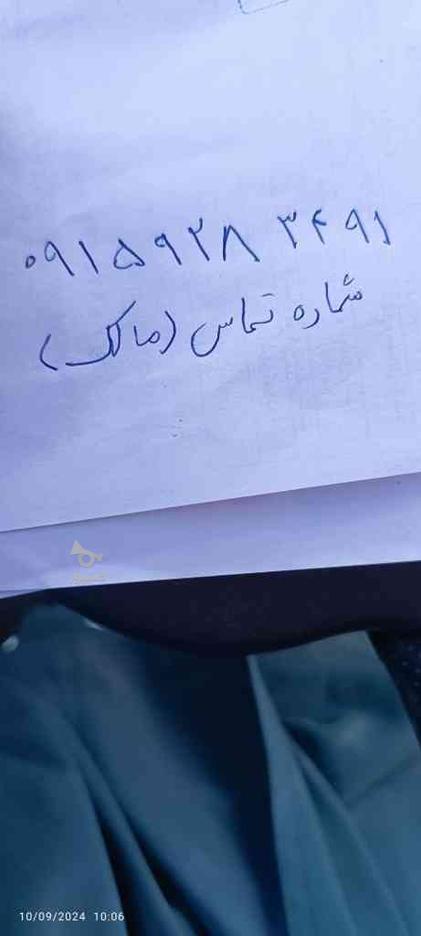 ۰۹۱۵۹۲۸ ۳۴۹۱
شماره تماس (مالک)
10/09/2024 10:06